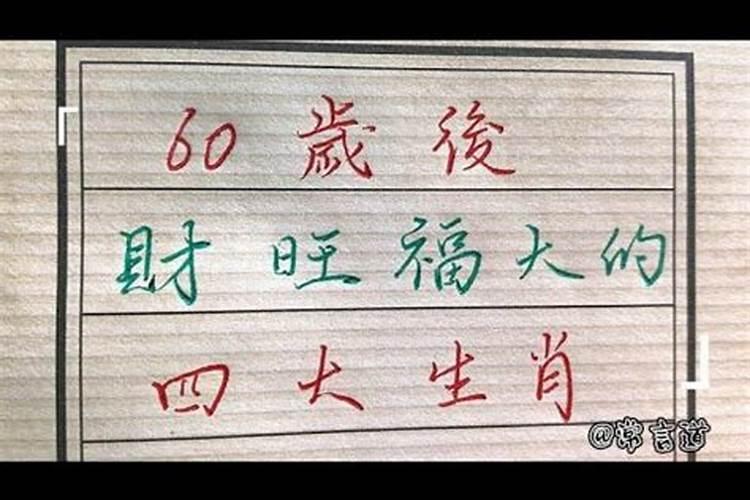 60歲後
財旺福大的
四大生肖
@常言道